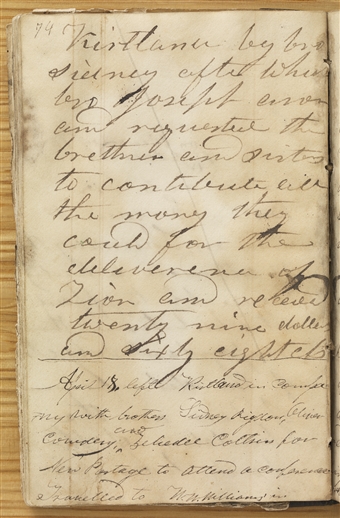 74
Kirtland by bro
sidney after which
bro Joseph arose
and requested the
brethren and sisters
to contribute all
the money they
could for the
deliverence of
Zion and received
twenty nine dollars
and sixty eight cts
April 18, left Kirtland in compa
ny with brothers Sidney Rigdon, Oliver
Cowdery, and Zebedee Coltrin for
New Portage to attend a conference
travelled to W. W. Williams in